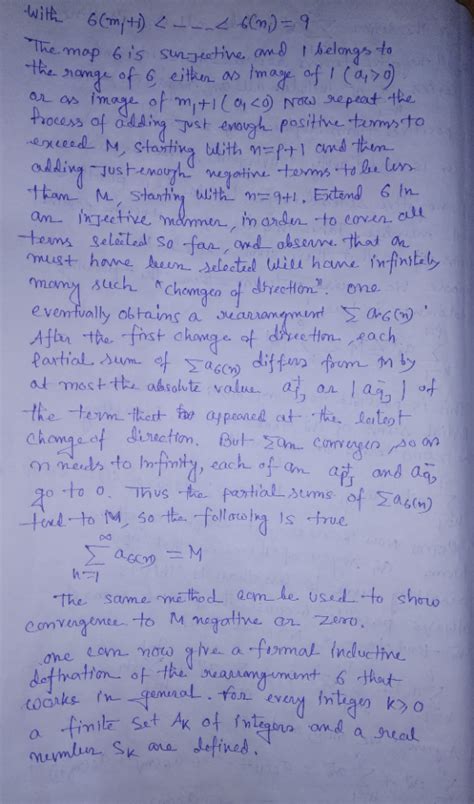 with 6(m₁+1) < ---- < 6(n₁) = 9
The map 6 is surjective and 1 belongs to
the range of 6, either as image of 1 (a₁>0)
or as image of m₁+1 (a₁<0) Now repeat the
process of adding just enough positive terms to
exceed M, starting with n=p+1 and then
adding just enough negative terms to be less
than M, starting with n=q+1. Extend 6 in
an injective manner, in order to cover all
terms selected so far, and observe that an
must have been selected will have infinitely
many such "changes of direction". one
eventually obtains a rearrangment Σ a6(n).
After the first change of direction, each
partial sum of Σa6(n) differs from M by
at most the absolute value a⁺pj or |a⁻qj| of
the term that appeared at the latest
change of direction. But Σan converges, so as
n needs to infinity, each of an a⁺pj and a⁻qj
go to 0. Thus the partial sums of Σa6(n)
tend to M, so the following is true
∞ Σ n=1 a6(n) = M
The same method can be used to show
convergence to M negative or zero.
one can now give a formal inductive
defination of the rearrangement 6 that
works in general. For every integer k>0
a finite set Ak of integers and a real
number Sk are defined.